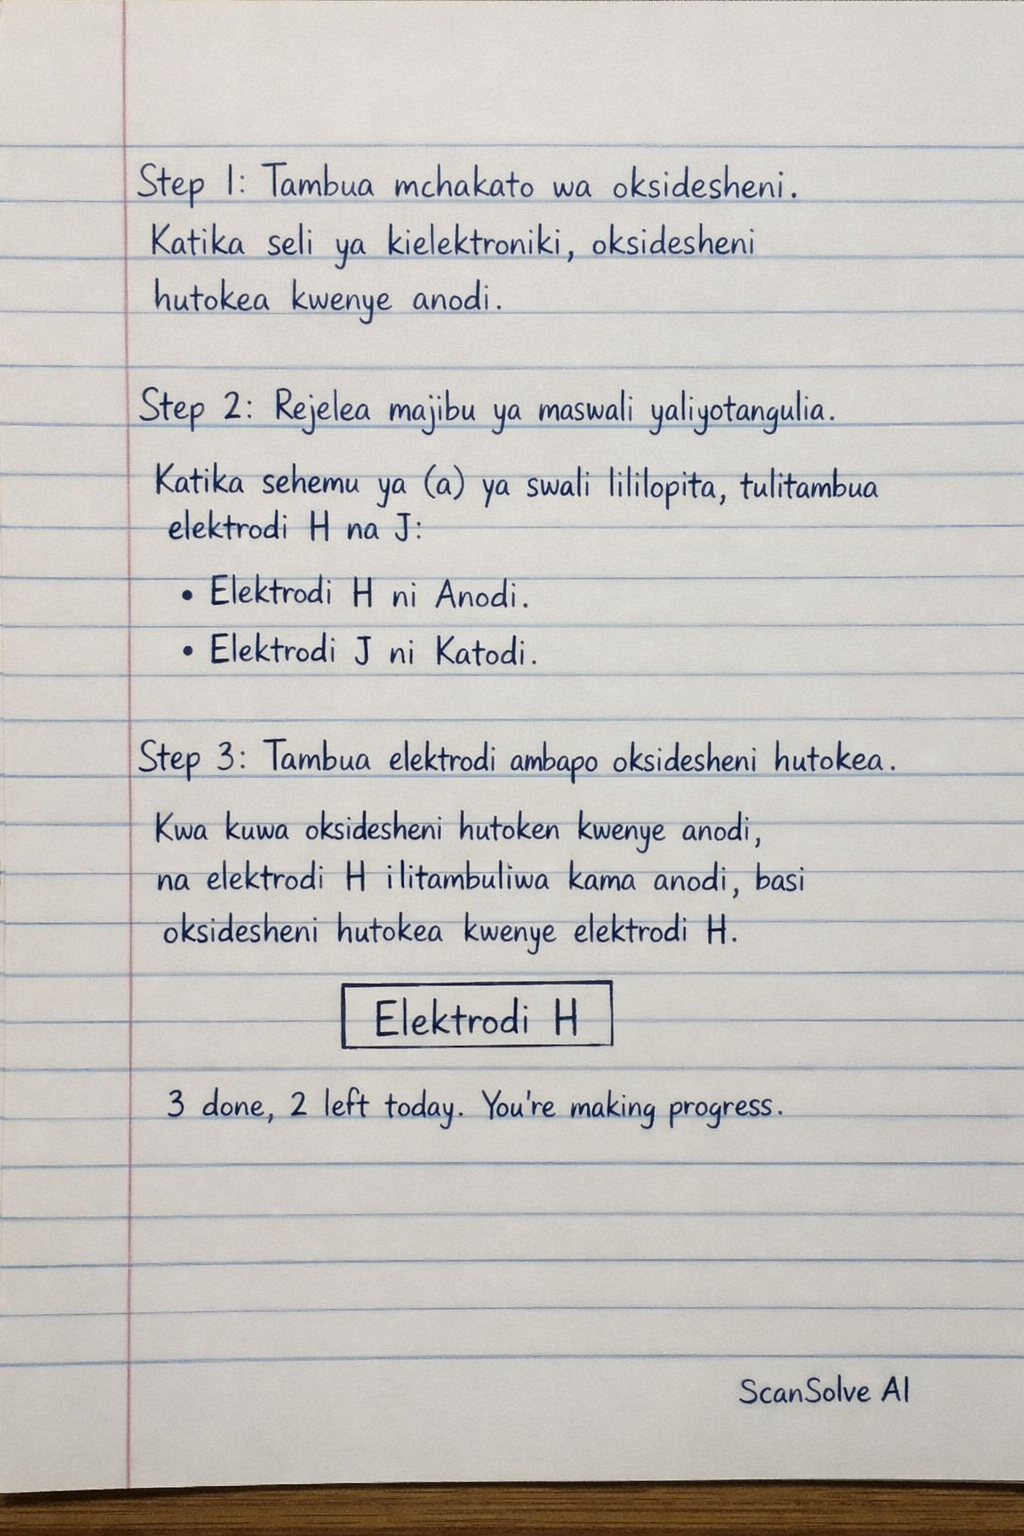 Step 1: Tambua mchakato wa oksidesheni.
Katika seli ya kielektroniki, oksidesheni
hutokea kwenye anodi.
Step 2: Rejelea majibu ya maswali yaliyotangulia.
Katika sehemu ya (a) ya swali lililopita, tulitambua
elektrodi H na J:
• Elektrodi H ni Anodi.
• Elektrodi J ni Katodi.
Step 3: Tambua elektrodi ambapo oksidesheni hutokea.
Kwa kuwa oksidesheni hutoken kwenye anodi,
na elektrodi H ilitambuliwa kama anodi, basi
oksidesheni hutokea kwenye elektrodi H.
Elektrodi H
3 done, 2 left today. You're making progress.
ScanSolve AI